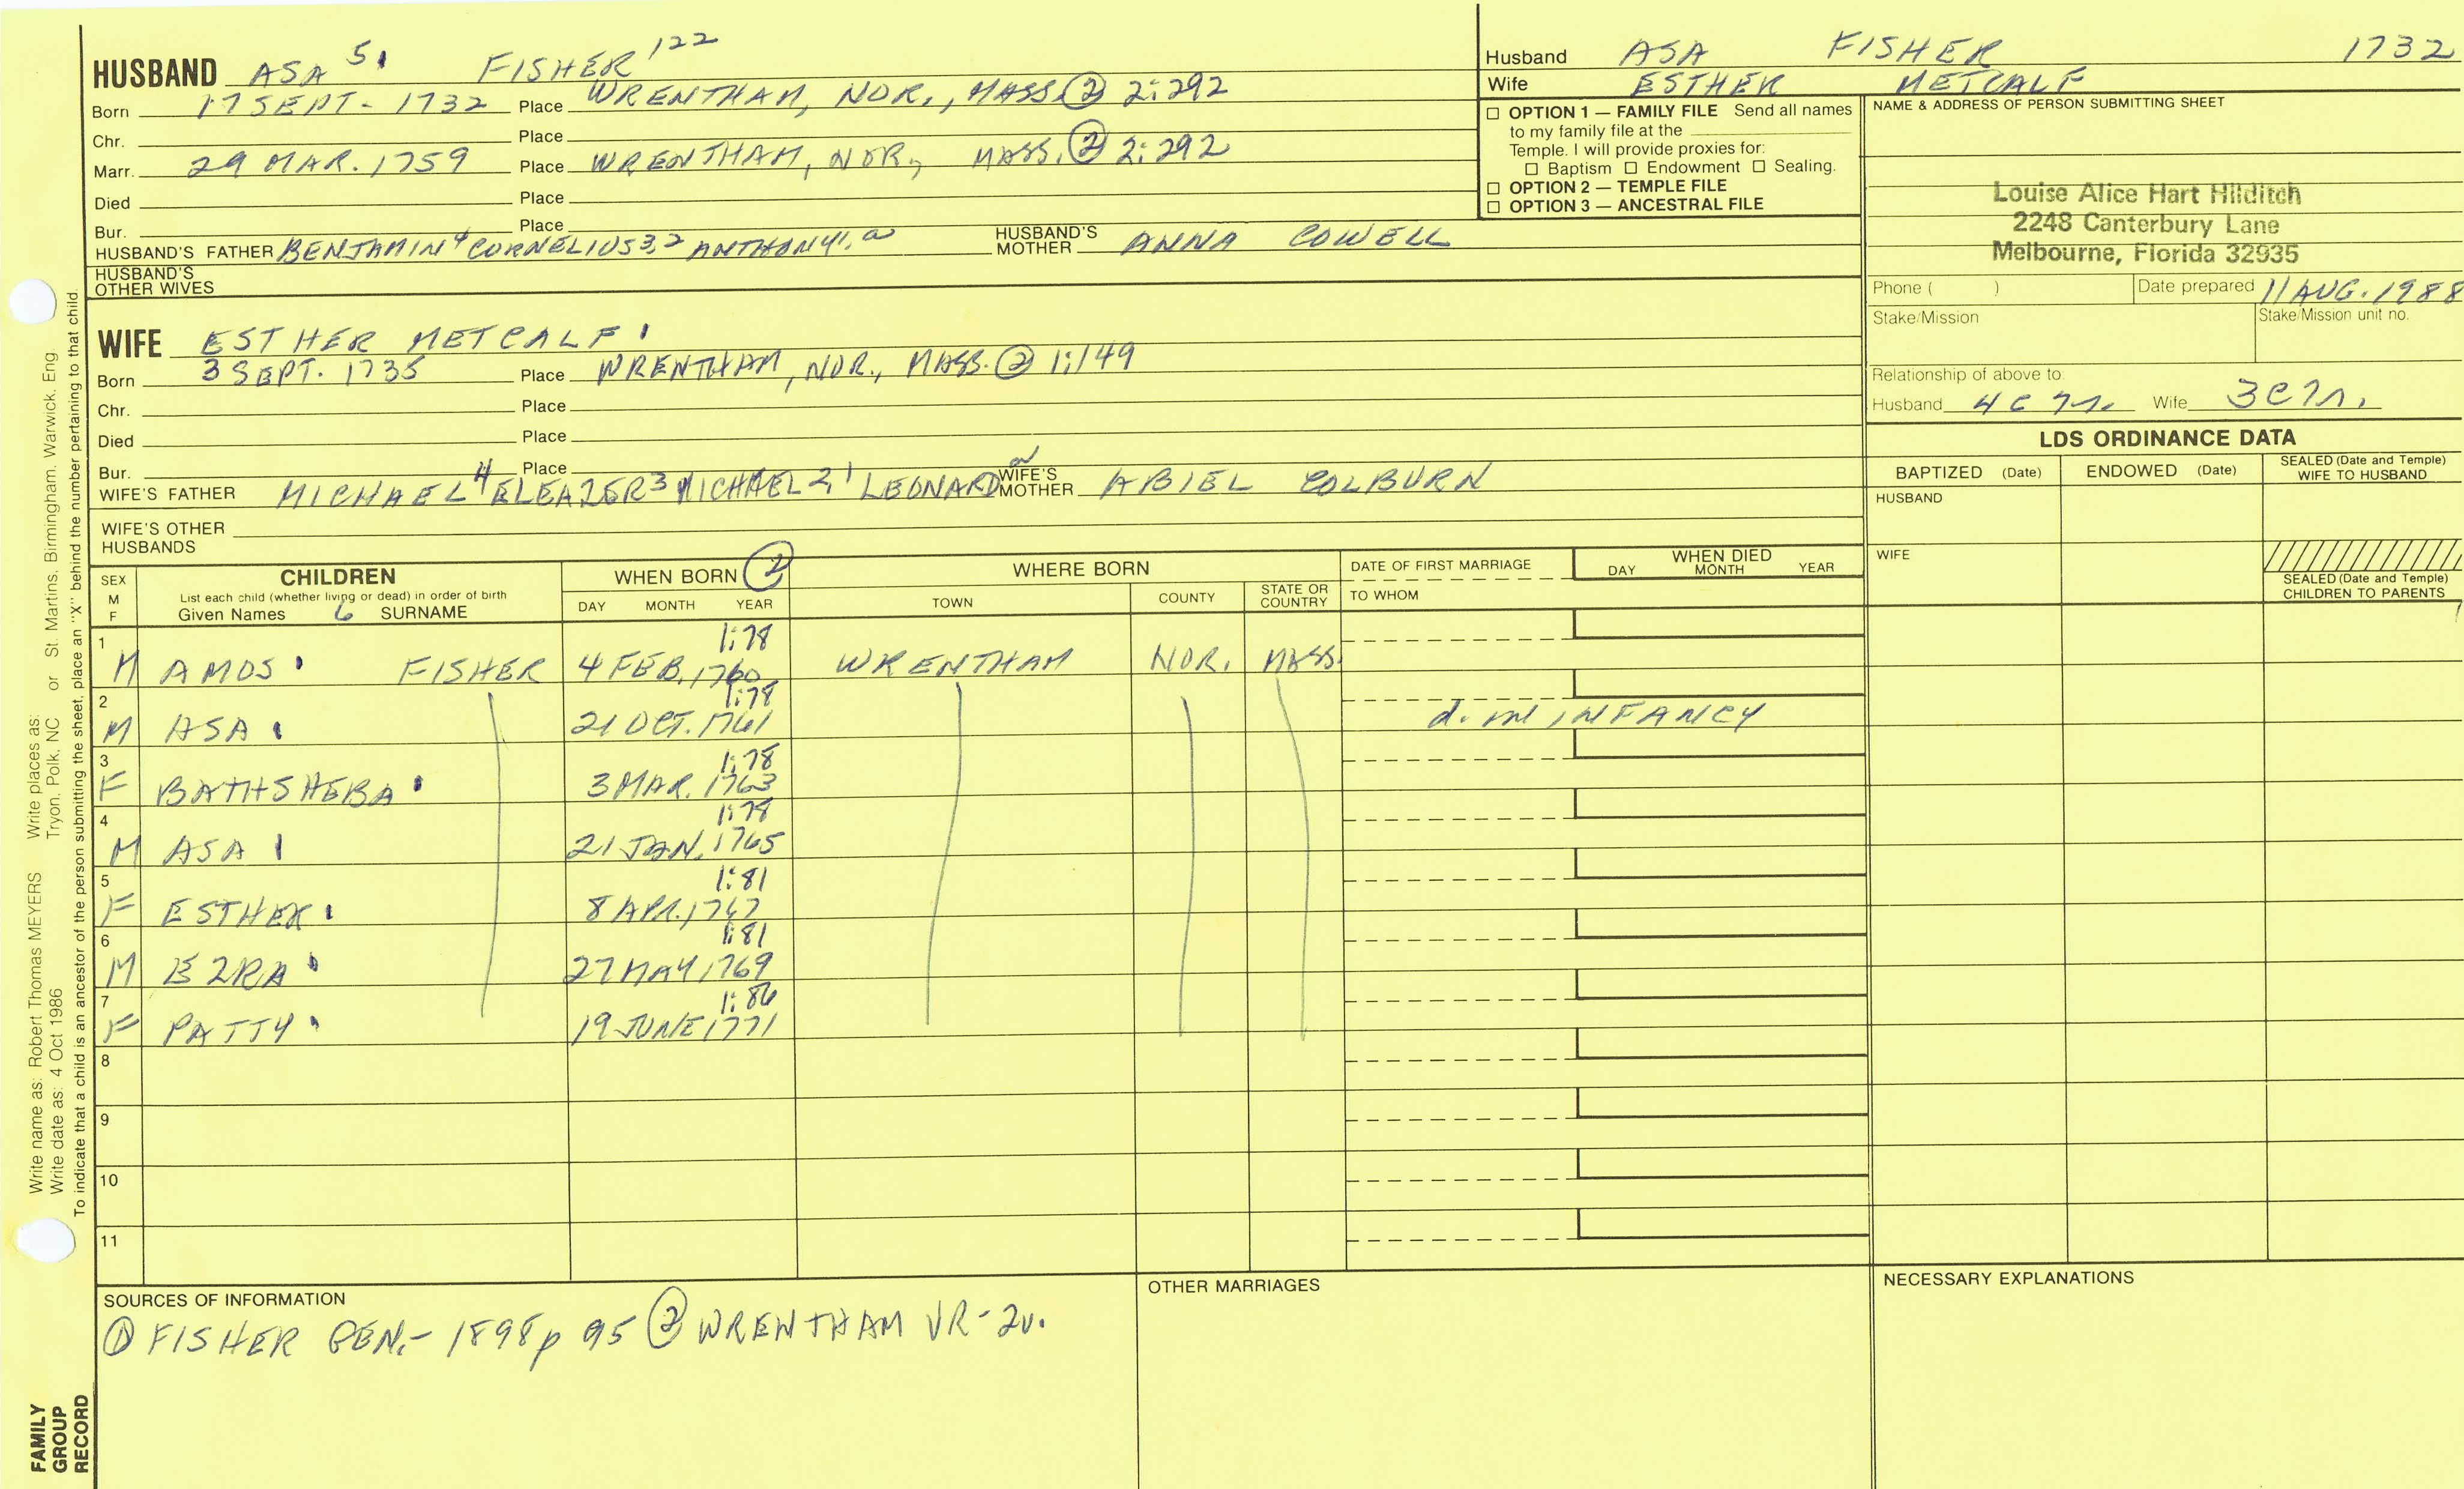 HUSBAND ASA 5 FISHER 122
Born 17 SEPT- 1732 Place WRENTHAM, NOR., MASS. ② 2:292
Chr. Place
Marr. 29 MAR. 1759 Place WRENTHAM, NOR., MASS. ② 2:292
Died Place
Bur. Place
HUSBAND'S FATHER BENJAMIN 4 CORNELIUS 3,2 ANTHONY 1, a HUSBAND'S MOTHER ANNA COWELL
HUSBAND'S OTHER WIVES
Husband ASA FISHER 1732
Wife ESTHER METCALF
☐ OPTION 1 — FAMILY FILE Send all names
to my family file at the
Temple. I will provide proxies for:
☐ Baptism ☐ Endowment ☐ Sealing.
☐ OPTION 2 — TEMPLE FILE
☐ OPTION 3 — ANCESTRAL FILE
NAME & ADDRESS OF PERSON SUBMITTING SHEET
Louise Alice Hart Hilditch
2248 Canterbury Lane
Melbourne, Florida 32935
Phone ( ) Date prepared 11 AUG. 1988
Stake/Mission Stake/Mission unit no.
Relationship of above to:
Husband 4C Wife 3C
WIFE ESTHER METCALF
Born 3 SEPT. 1735 Place WRENTHAM, NOR., MASS. ② 1:149
Chr. Place
Died Place
Bur. Place
WIFE'S FATHER MICHAEL 4 ELEAZER 3 MICHAEL 2,1 LEONARD a WIFE'S MOTHER ABIEL COLBURN
WIFE'S OTHER
HUSBANDS
LDS ORDINANCE DATA
BAPTIZED (Date) ENDOWED (Date) SEALED (Date and Temple) WIFE TO HUSBAND
HUSBAND
WIFE
SEALED (Date and Temple)
CHILDREN TO PARENTS
SEX M F CHILDREN WHEN BORN ② WHERE BORN DATE OF FIRST MARRIAGE WHEN DIED
List each child (whether living or dead) in order of birth
Given Names 6 SURNAME DAY MONTH YEAR TOWN COUNTY STATE OR COUNTRY TO WHOM DAY MONTH YEAR
1 1:78
M AMOS FISHER 4 FEB. 1760 WRENTHAM NOR. MASS.
2 1:78
M ASA 21 OCT. 1761 d. in INFANCY
3 1:78
F BATHSHEBA 3 MAR. 1763
4 1:78
M ASA 21 JAN. 1765
5 1:81
F ESTHER 8 APR. 1767
6 1:81
M EZRA 27 MAY 1769
7 1:86
F PATTY 19 JUNE 1771
8
9
10
11
SOURCES OF INFORMATION
① FISHER GEN.- 1898 p 95 ② WRENTHAM VR- 2v.
OTHER MARRIAGES
NECESSARY EXPLANATIONS
Write name as: Robert Thomas MEYERS Write places as: St. Martins, Birmingham, Warwick, Eng.
Write date as: 4 Oct 1986 Tryon, Polk, NC or
To indicate that a child is an ancestor of the person submitting the sheet, place an "X" behind the number pertaining to that child.
FAMILY
GROUP
RECORD